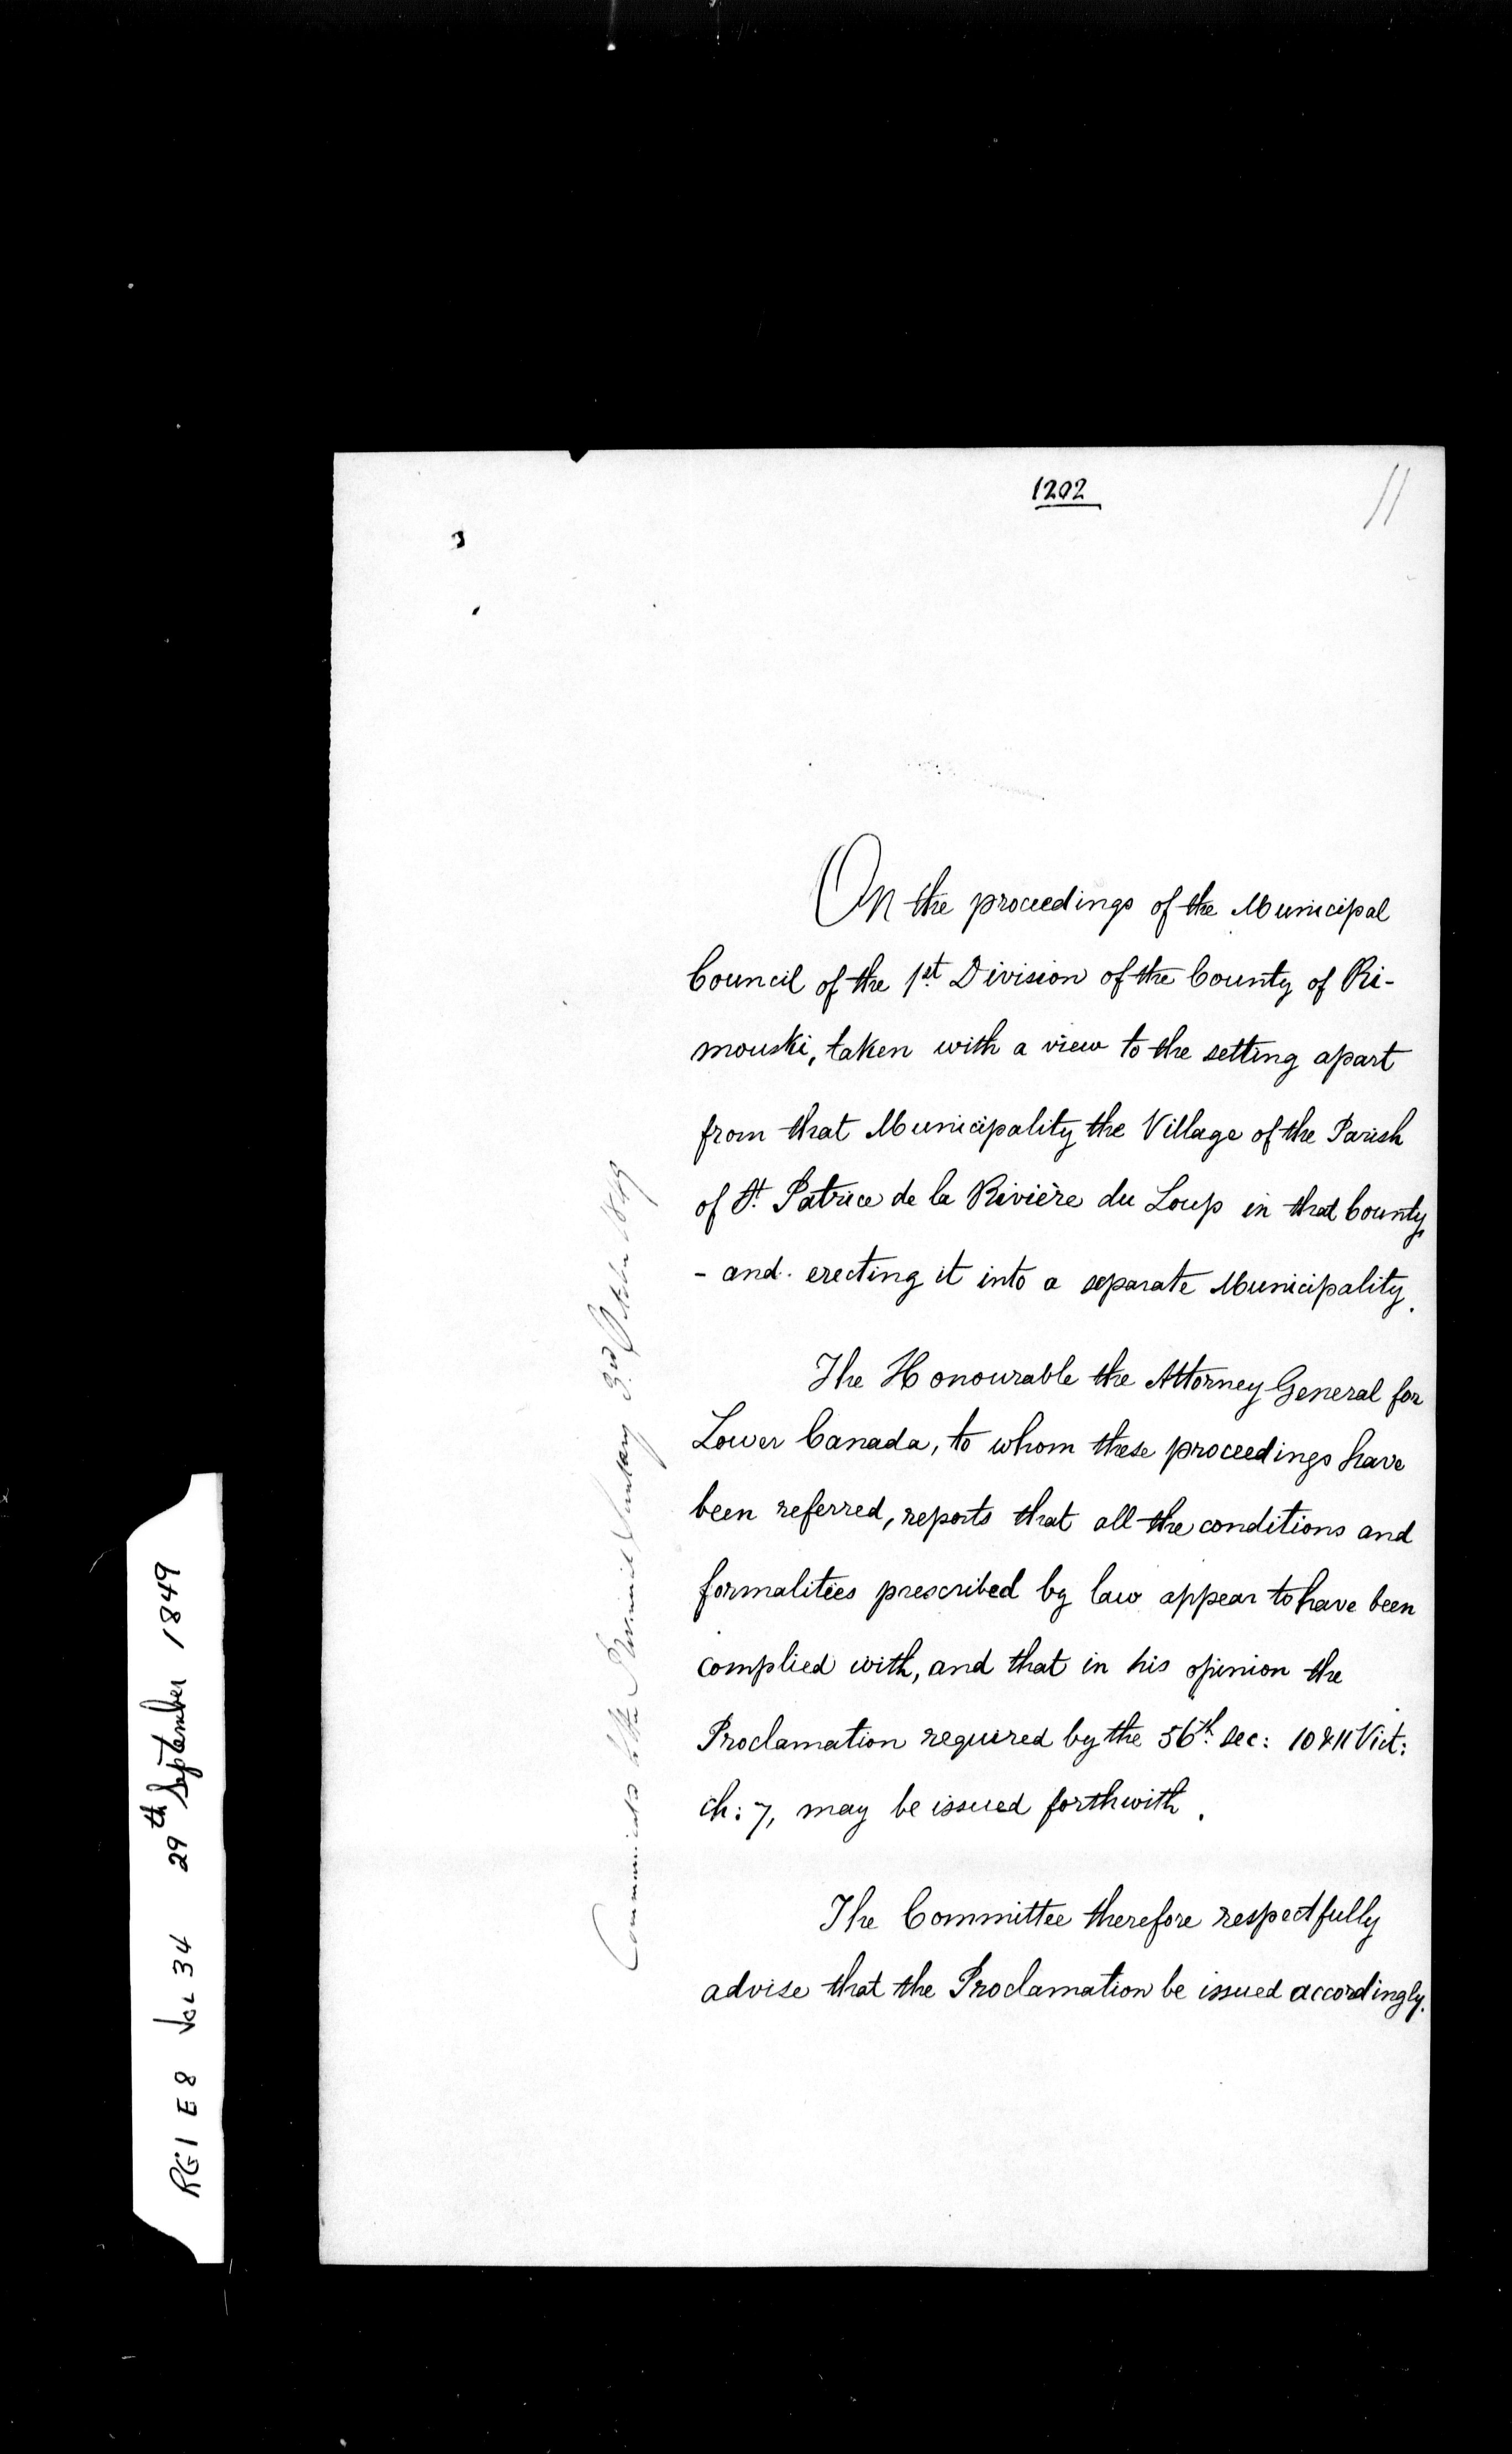 1202
11
On the proceedings of the Municipal
Council of the 1st Division of the County of Ri-
mouski, taken with a view to the setting apart
from that Municipality the Village of the Parish
of St. Patrice de la Rivière du Loup in that County,
- and erecting it into a separate Municipality.
The Honourable the Attorney General for
Lower Canada, to whom these proceedings have
been referred, reports that all the conditions and
formalities prescribed by law appear to have been
complied with, and that in his opinion the
Proclamation required by the 56th. Sec: 10 & 11 Vict:
ch: 7, may be issued forthwith.
The Committee therefore respectfully
advise that the Proclamation be issued accordingly.
to the Provincial Secretary 3rd October 1849
RG1 E8 Vol 34 29th September 1849